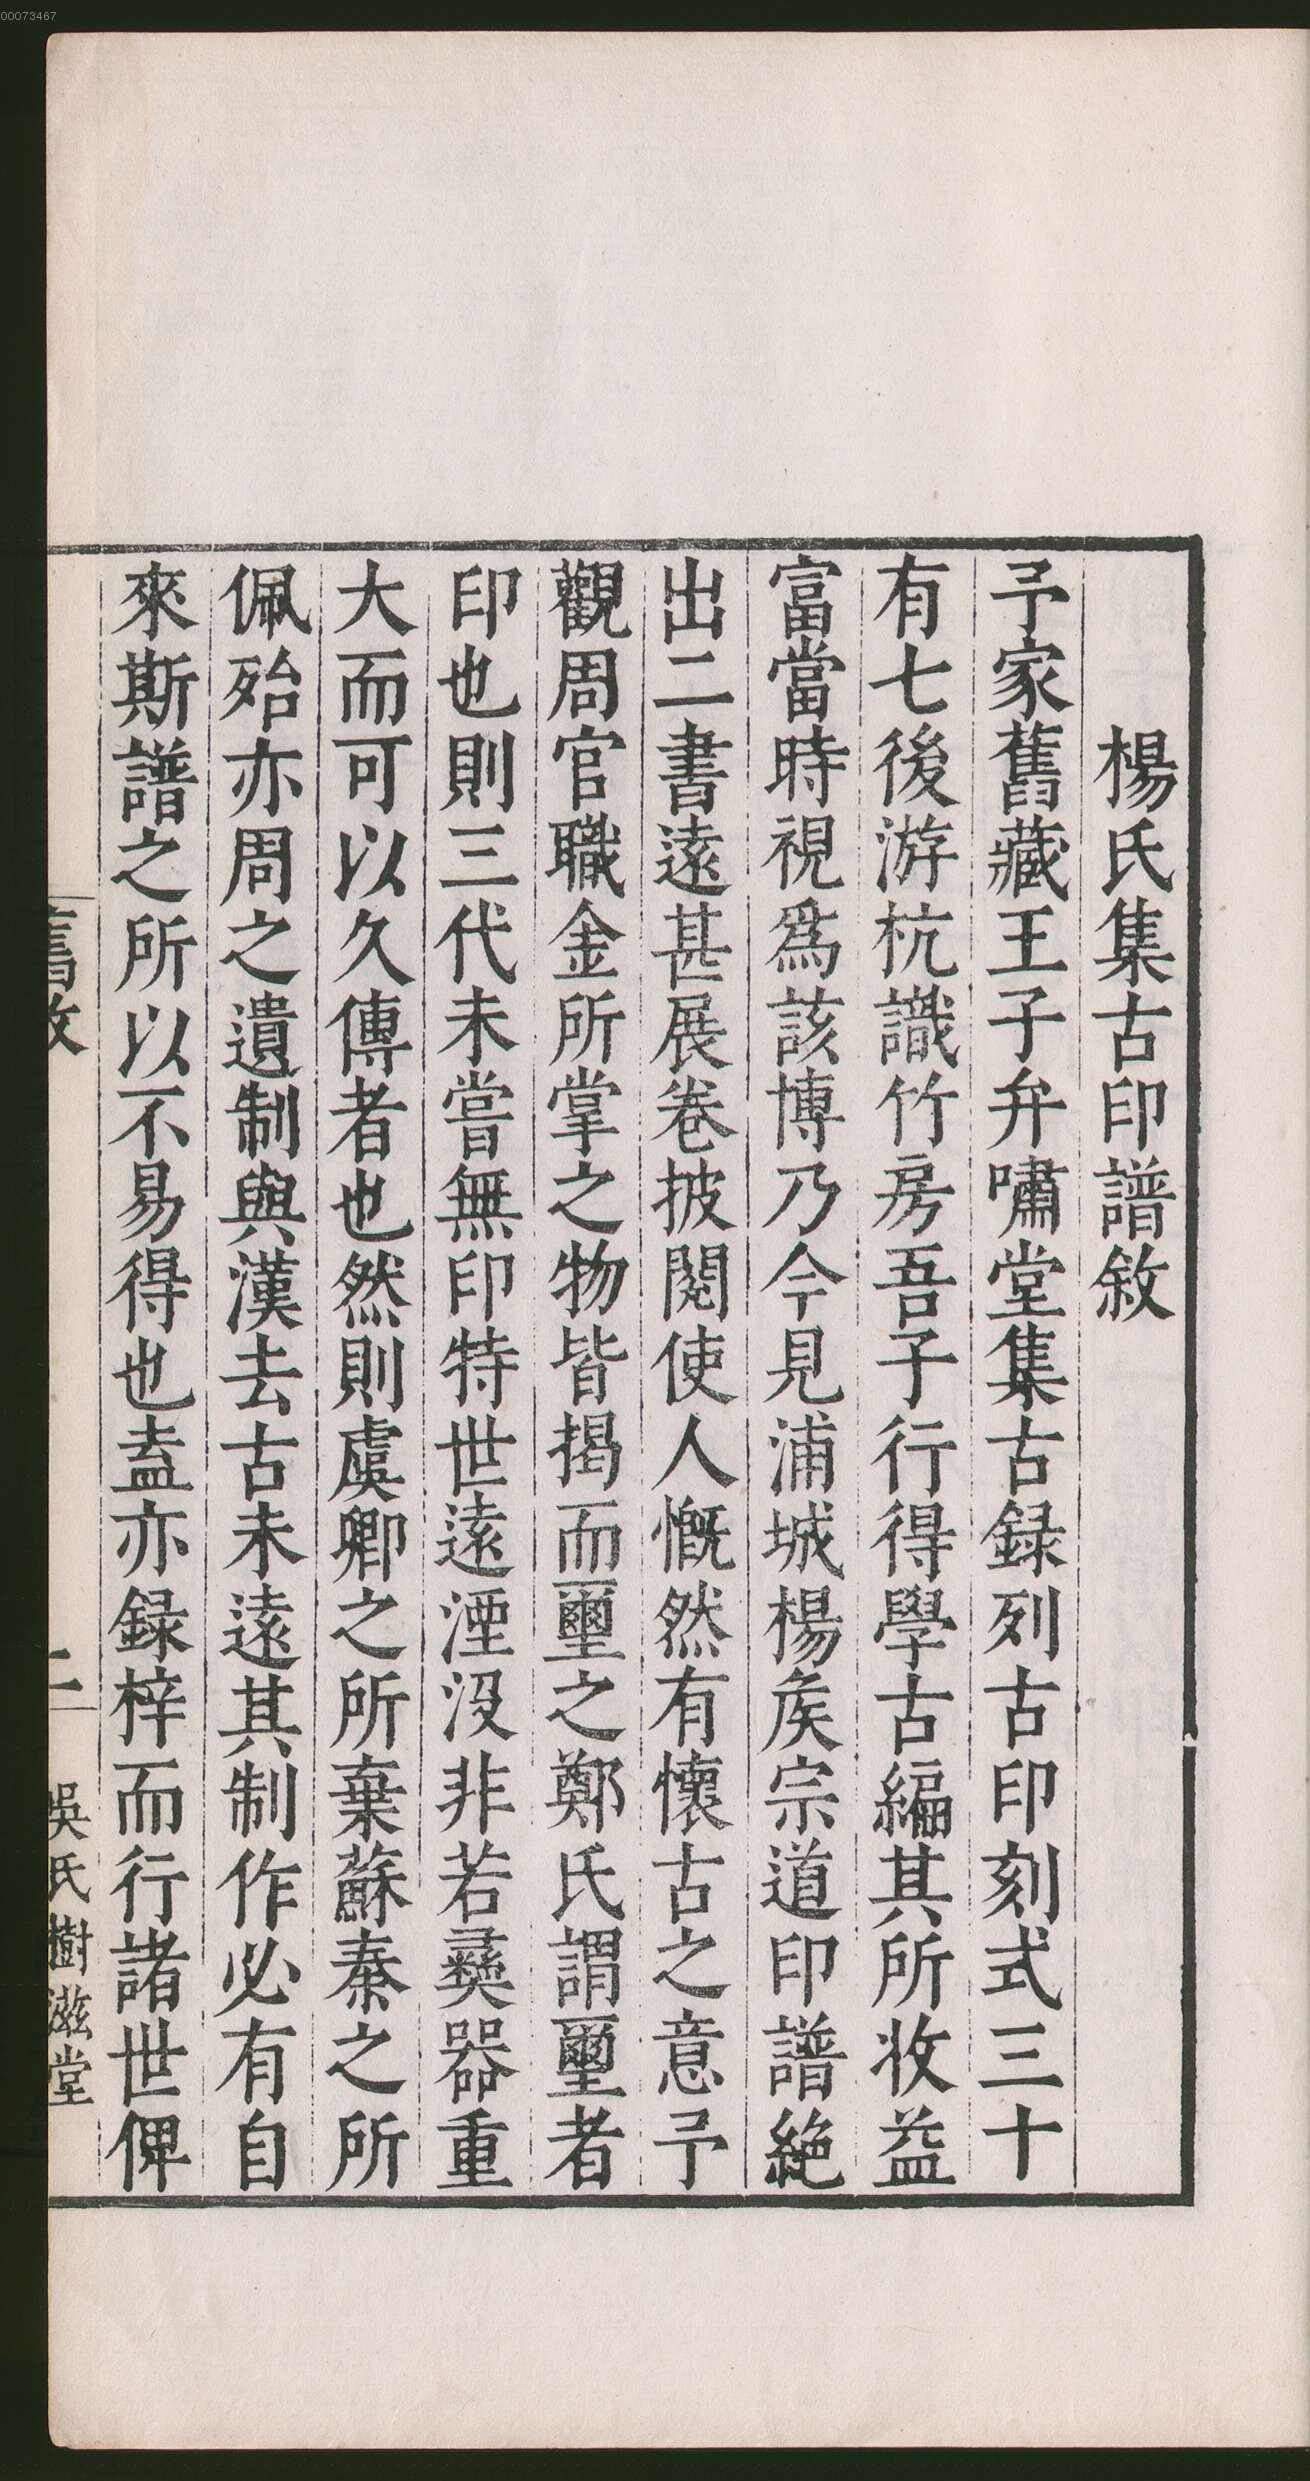 00073467
楊氏集古印譜敘
予家舊藏王子弁嘯堂集古録列古印刻式三十
有七後游杭識竹房吾子行得學古編其所收益
富當時視爲該博乃今見浦城楊矦宗道印譜絶
出二書遠甚展卷披閱使人慨然有懷古之意予
觀周官職金所掌之物皆揭而璽之鄭氏謂璽者
印也則三代未嘗無印特世遠湮沒非若彝器重
大而可以久傳者也然則虞卿之所棄蘇秦之所
佩殆亦周之遺制與漢去古未遠其制作必有自
來斯譜之所以不易得也盍亦録梓而行諸世俾
舊敘
二
吳氏樹滋堂